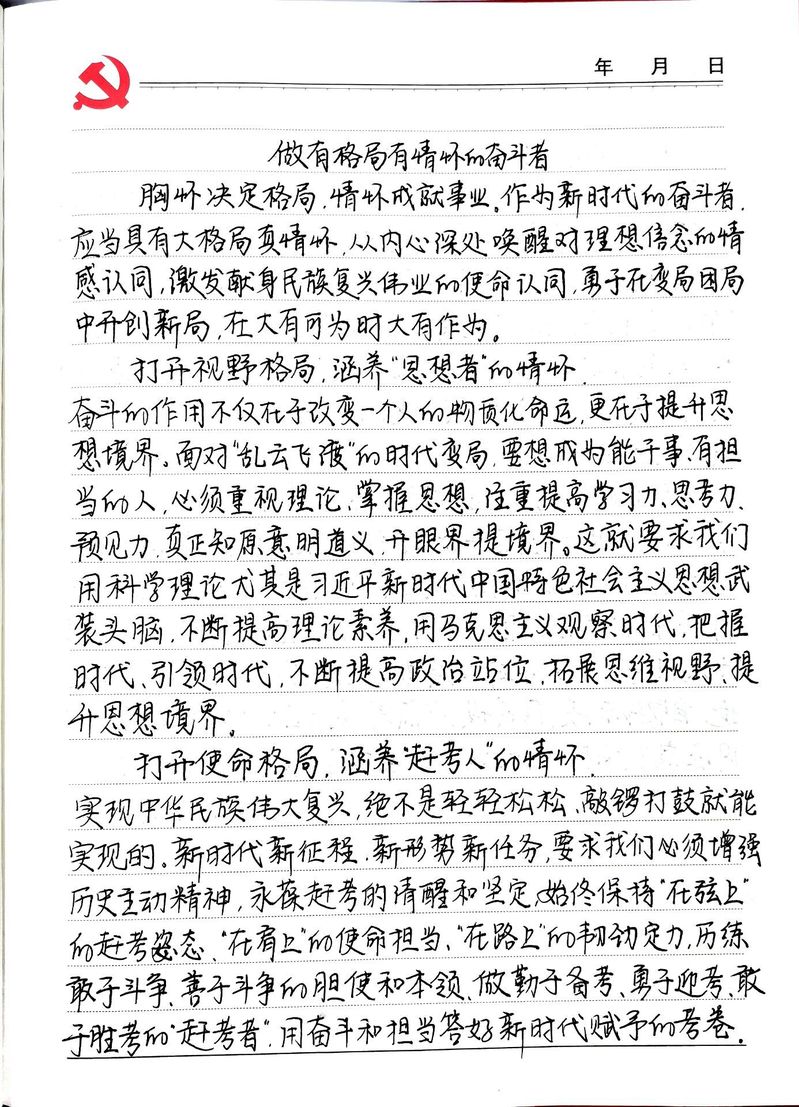 年 月 日
做有格局有情怀的奋斗者
胸怀决定格局,情怀成就事业。作为新时代的奋斗者,
应当具有大格局真情怀,从内心深处唤醒对理想信念的情
感认同,激发献身民族复兴伟业的使命认同,勇于在变局困局
中开创新局,在大有可为时大有作为。
打开视野格局,涵养“思想者”的情怀.
奋斗的作用不仅在于改变一个人的物质化命运,更在于提升思
想境界。面对“乱云飞渡”的时代变局,要想成为能干事、有担
当的人,必须重视理论、掌握思想,注重提高学习力、思考力、
预见力,真正知原意明道义,开眼界提境界。这就要求我们
用科学理论尤其是习近平新时代中国特色社会主义思想武
装头脑,不断提高理论素养,用马克思主义观察时代,把握
时代、引领时代,不断提高政治站位、拓展思维视野、提
升思想境界。
打开使命格局,涵养“赶考人”的情怀.
实现中华民族伟大复兴,绝不是轻轻松松、敲锣打鼓就能
实现的。新时代新征程、新形势新任务,要求我们必须增强
历史主动精神,永葆赶考的清醒和坚定,始终保持“在弦上”
的赶考姿态、“在肩上”的使命担当、“在路上”的韧劲定力,历练
敢于斗争、善于斗争的胆使和本领、做勤于备考、勇于迎考、敢
于胜考的“赶考者”,用奋斗和担当答好新时代赋予的考卷.